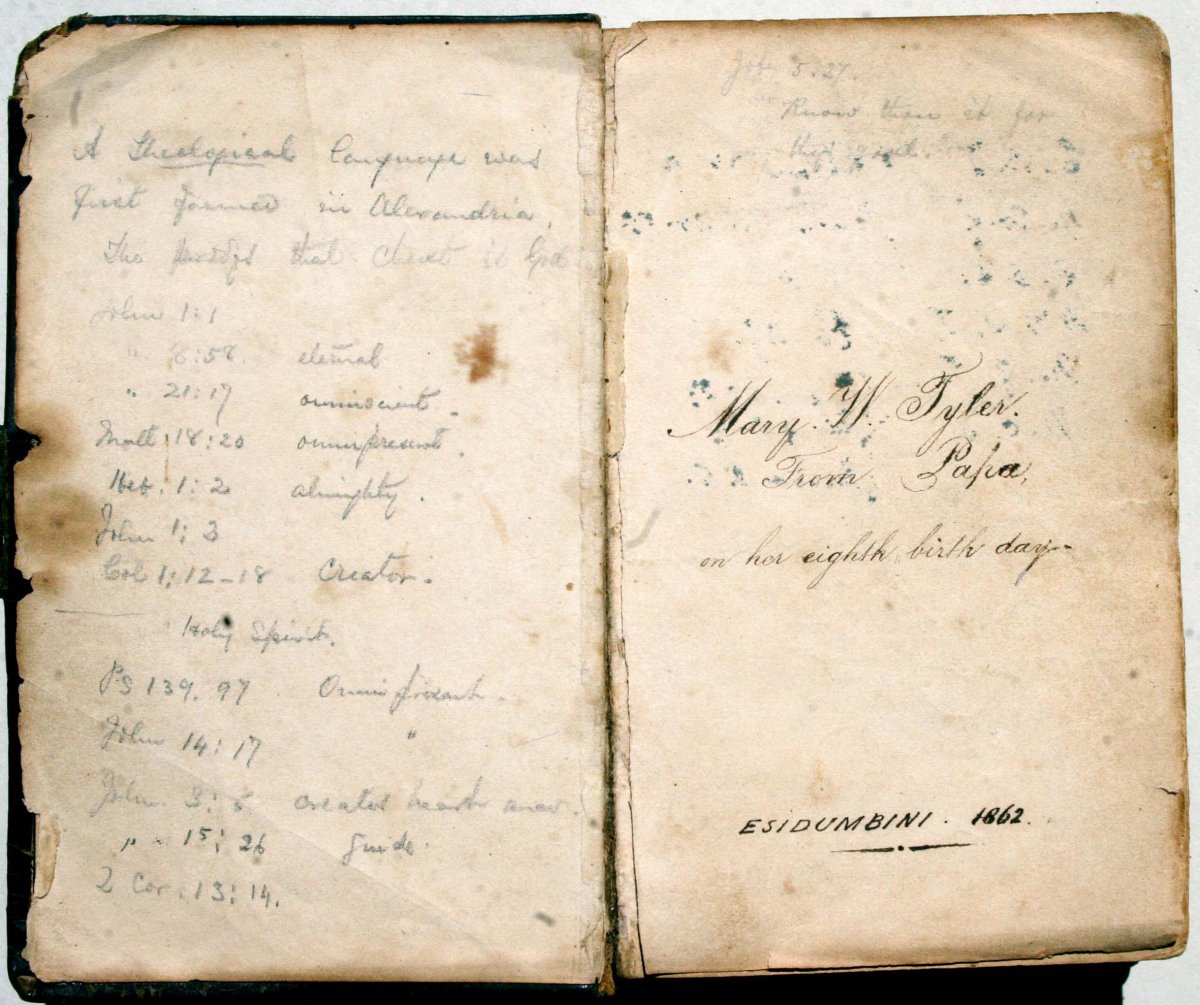 A Theological language was
first formed in Alexandria.
The proofs that Christ is God
John 1:1
" 8:58. eternal
" 21:17 omniscient.
Matt. 18:20 omnipresent.
Heb. 1:2 almighty.
John 1:3
Col 1:12-18 Creator.
Holy Spirit.
PS 139. 97 Omnipresent.
John 14:17 "
John 3:5 creates heart anew.
" 15:26 guide.
2 Cor. 13:14.
Job 5.27.
Know thou it for
thy good.
Mary. W. Tyler.
From Papa,
on her eighth birth day
ESIDUMBINI. 1862.